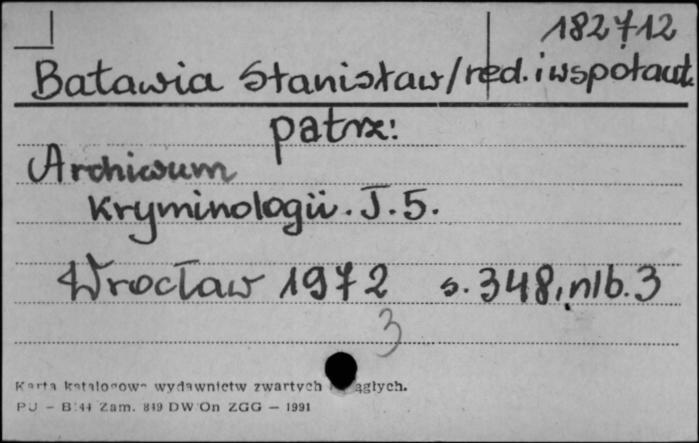 182712
Batawia Stanisław/red. i współaut.
patrz:
Archiwum
Kryminologii. T. 5.
Wrocław 1972 s. 348, nlb. 3
3
Karta katalogowa wydawnictw zwartych ągłych.
PU - B/44 Zam. 849 DW On ZGG — 1991